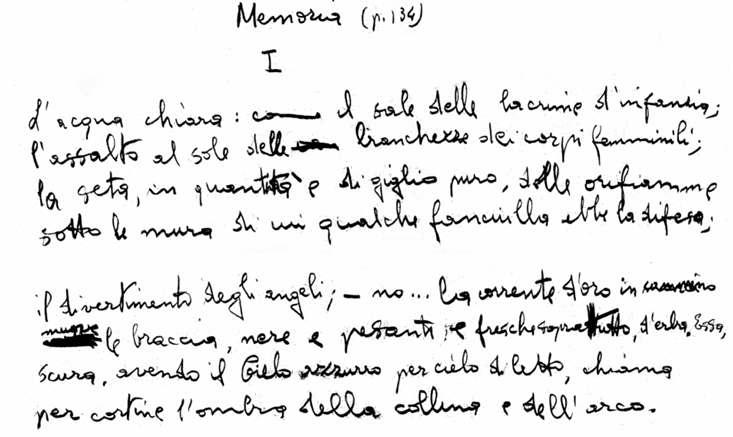 Memoria (p. 134)
I
L'acqua chiara: come il sale delle lacrime d'infanzia;
l'assalto al sole delle bianchezze dei corpi femminili;
la seta, in quantità e di giglio puro, delle orifiamme
sotto le mura di cui qualche fanciulla ebbe la difesa;
il divertimento degli angeli; – no... la corrente d'oro in cammino
muove le braccia, nere e pesanti, e fresche soprattutto, d'erba. Essa,
scura, avendo il Cielo azzurro per cielo di letto, chiama
per cortine l'ombra della collina e dell'arco.